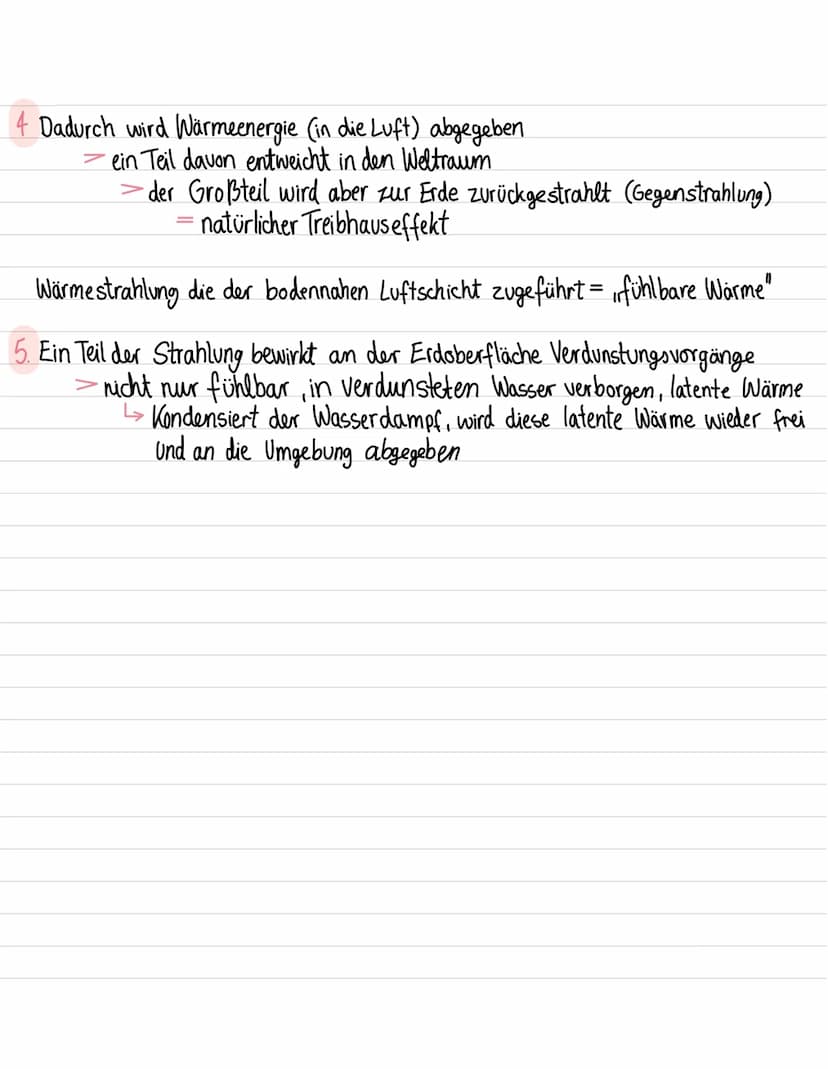 4 Dadurch wird Wärmeenergie (in die Luft) abgegeben
> ein Teil davon entweicht in den Weltraum
> der Großteil wird aber zur Erde zurückgestrahlt (Gegenstrahlung)
= natürlicher Treibhauseffekt
Wärmestrahlung die der bodennahen Luftschicht zugeführt = „fühlbare Wärme"
5. Ein Teil der Strahlung bewirkt an der Erdoberfläche Verdunstungsvorgänge
> nicht nur fühlbar, in verdunsteten Wasser verborgen, latente Wärme
↳ Kondensiert der Wasserdampf, wird diese latente Wärme wieder frei
und an die Umgebung abgegeben